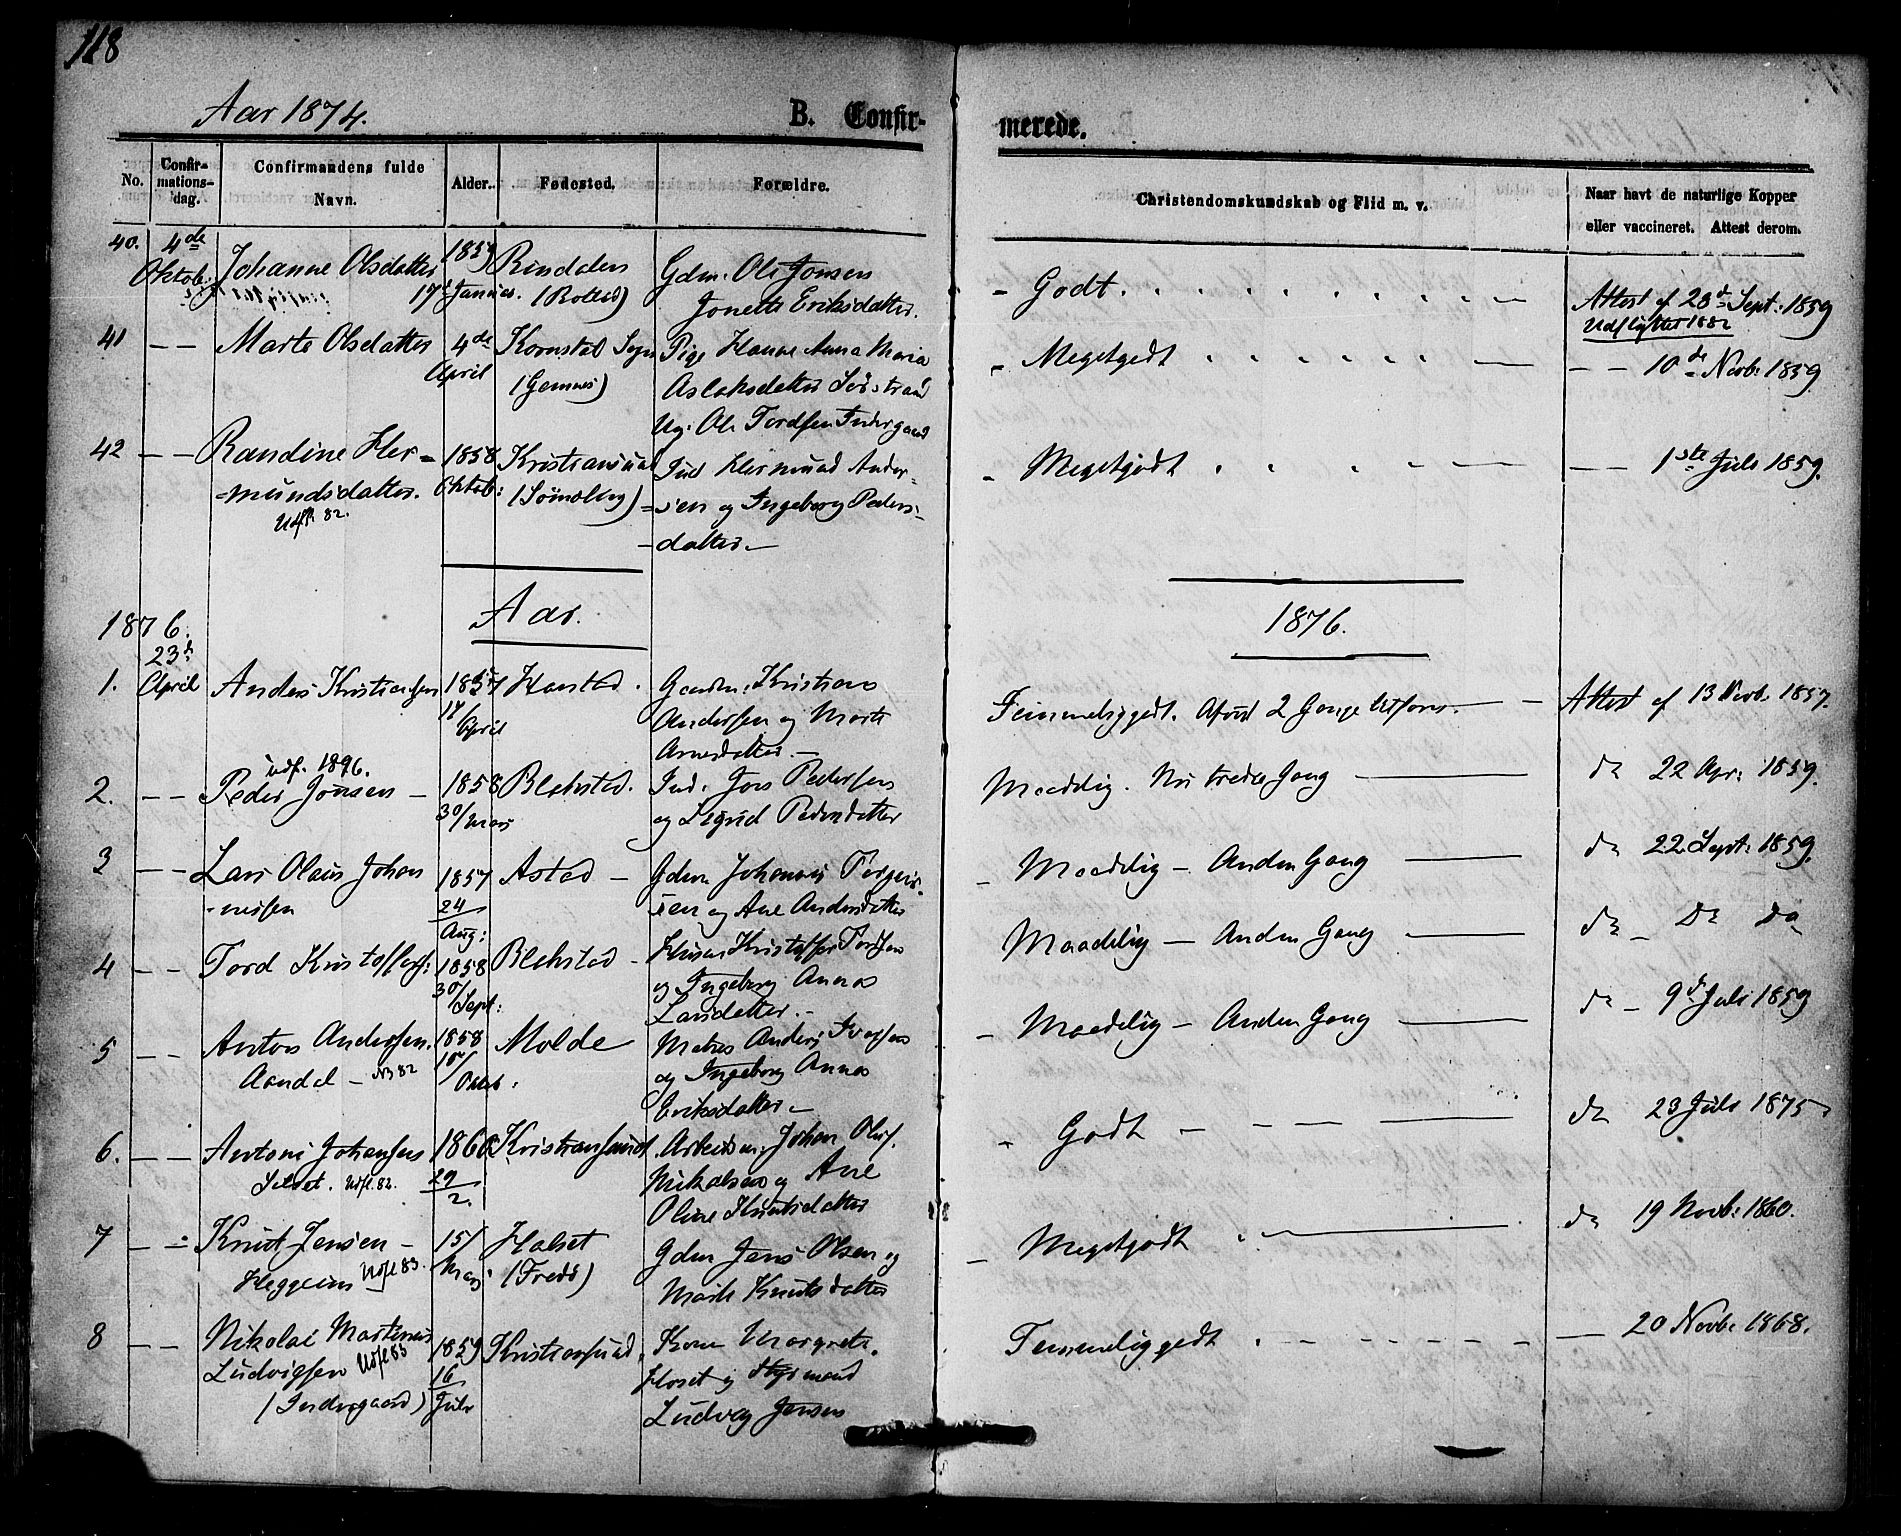 118
Aar 1874.
B. Confir-
merede.
No.
Confir-
mations-
dag.
Confirmandens fulde
Navn.
Alder.
Fødested.
Forældre.
Christendomskundskab og Flid m. v.
Naar havt de naturlige Kopper
eller vaccineret. Attest derom.
40. 4de Johanne Olsdatter 1859 Rindalen Gdm. Ole Jonsen
Oktob: 17de Januar. Jonette Eriksdatter.
- Godt. Attest af 28de Sept: 1859
Udflyttet 1882
41 - - Marte Olsdatter 4de Kornstad Sogn Pige Hanne Anna Maria
April Aslaksdatter
Ole Tordsen Indergaard
- Megetgodt - - 10de Novb: 1859
42 - - Randine Her= 1858 Kristiansund Ind. Hermund Ander-
=mundsdatter. Oktob: =sen og Ingeborg Peders-
Udfl. 82. -datter. -
- Megetgodt - - 1ste Juli 1859.
Aar.
1876.
1876.
23de
1. April Anders Kristiansen 1857 Harstad. Gaardm. Kristian
17/April Andersen og Marte
Arnesdatter -
Temmeliggodt. Afvist 2 Gange - Attest af 13 Novb. 1857.
Udf. 1896.
2. - - Peder Jonsen - 1858 Blekstad. Ind. Jon Pedersen
30/Mars og Sigrid Pedersdatter
Maadelig. Nu tredie Gang - do 22 Apr: 1859.
3 - - Lars Olaus Johan 1857 Astad - Gdm. Johannes Torgeir-
-nessen 24 sen og Ane Andersdatter
Aug:
- Maadelig - Anden Gang - do 22 Sept: 1859.
4 - - Tord Kristoffers: 1858 Blekstad - Kristoffer Tordsen
30/Sept: og Ingeborg Anna
Larsdatter. -
Maadelig - Anden Gang - do - Do Do
5 - - Anton Andersen. 1858 Molde Anders Iversen
Aandal - 82 /Oktob: og Ingeborg Anna
Eriksdatter -
- Maadelig - Anden Gang - do - 9de Juli 1859
6. - - Antoni Johansen 1860 Kristiansund Arbeidsm. Johan Oluf
Udfl. 82. 29 Nikolsen og Ane
2. Oline Knutsdatter
- Godt - - - do 23 Juli 1875
7 - - Knut Jensen - 15/ Halset Gdm Jens Olsen og
Heggeim Udfl 83. Mars (Fredø) Marit Knutsdatter
- Megetgodt - do 19 Novb: 1860.
8 - - Nikolai Martinus 1859 Kristiansund. Kone Margrete
Ludvigsen Udfl 83 16 Hoset og Styrmand
(Indergaard) Juli Ludvig Jensen
Temmeliggodt - 20 Novb. 1868.